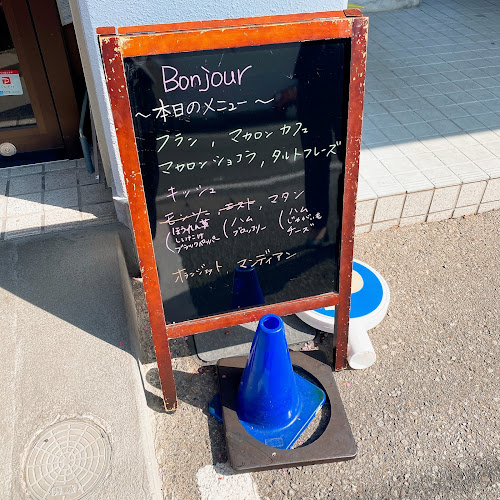 Bonjour
～本日のメニュー～
フラン、マカロンカフェ
マカロンショコラ、タルトフレーズ
キッシュ
モーツー、エスト、マタン
(ほうれん草 (ハム (ハム
しいたけ ブロッコリー じゃがいも
ブラックペッパー チーズ
オランジェット、マンディアン